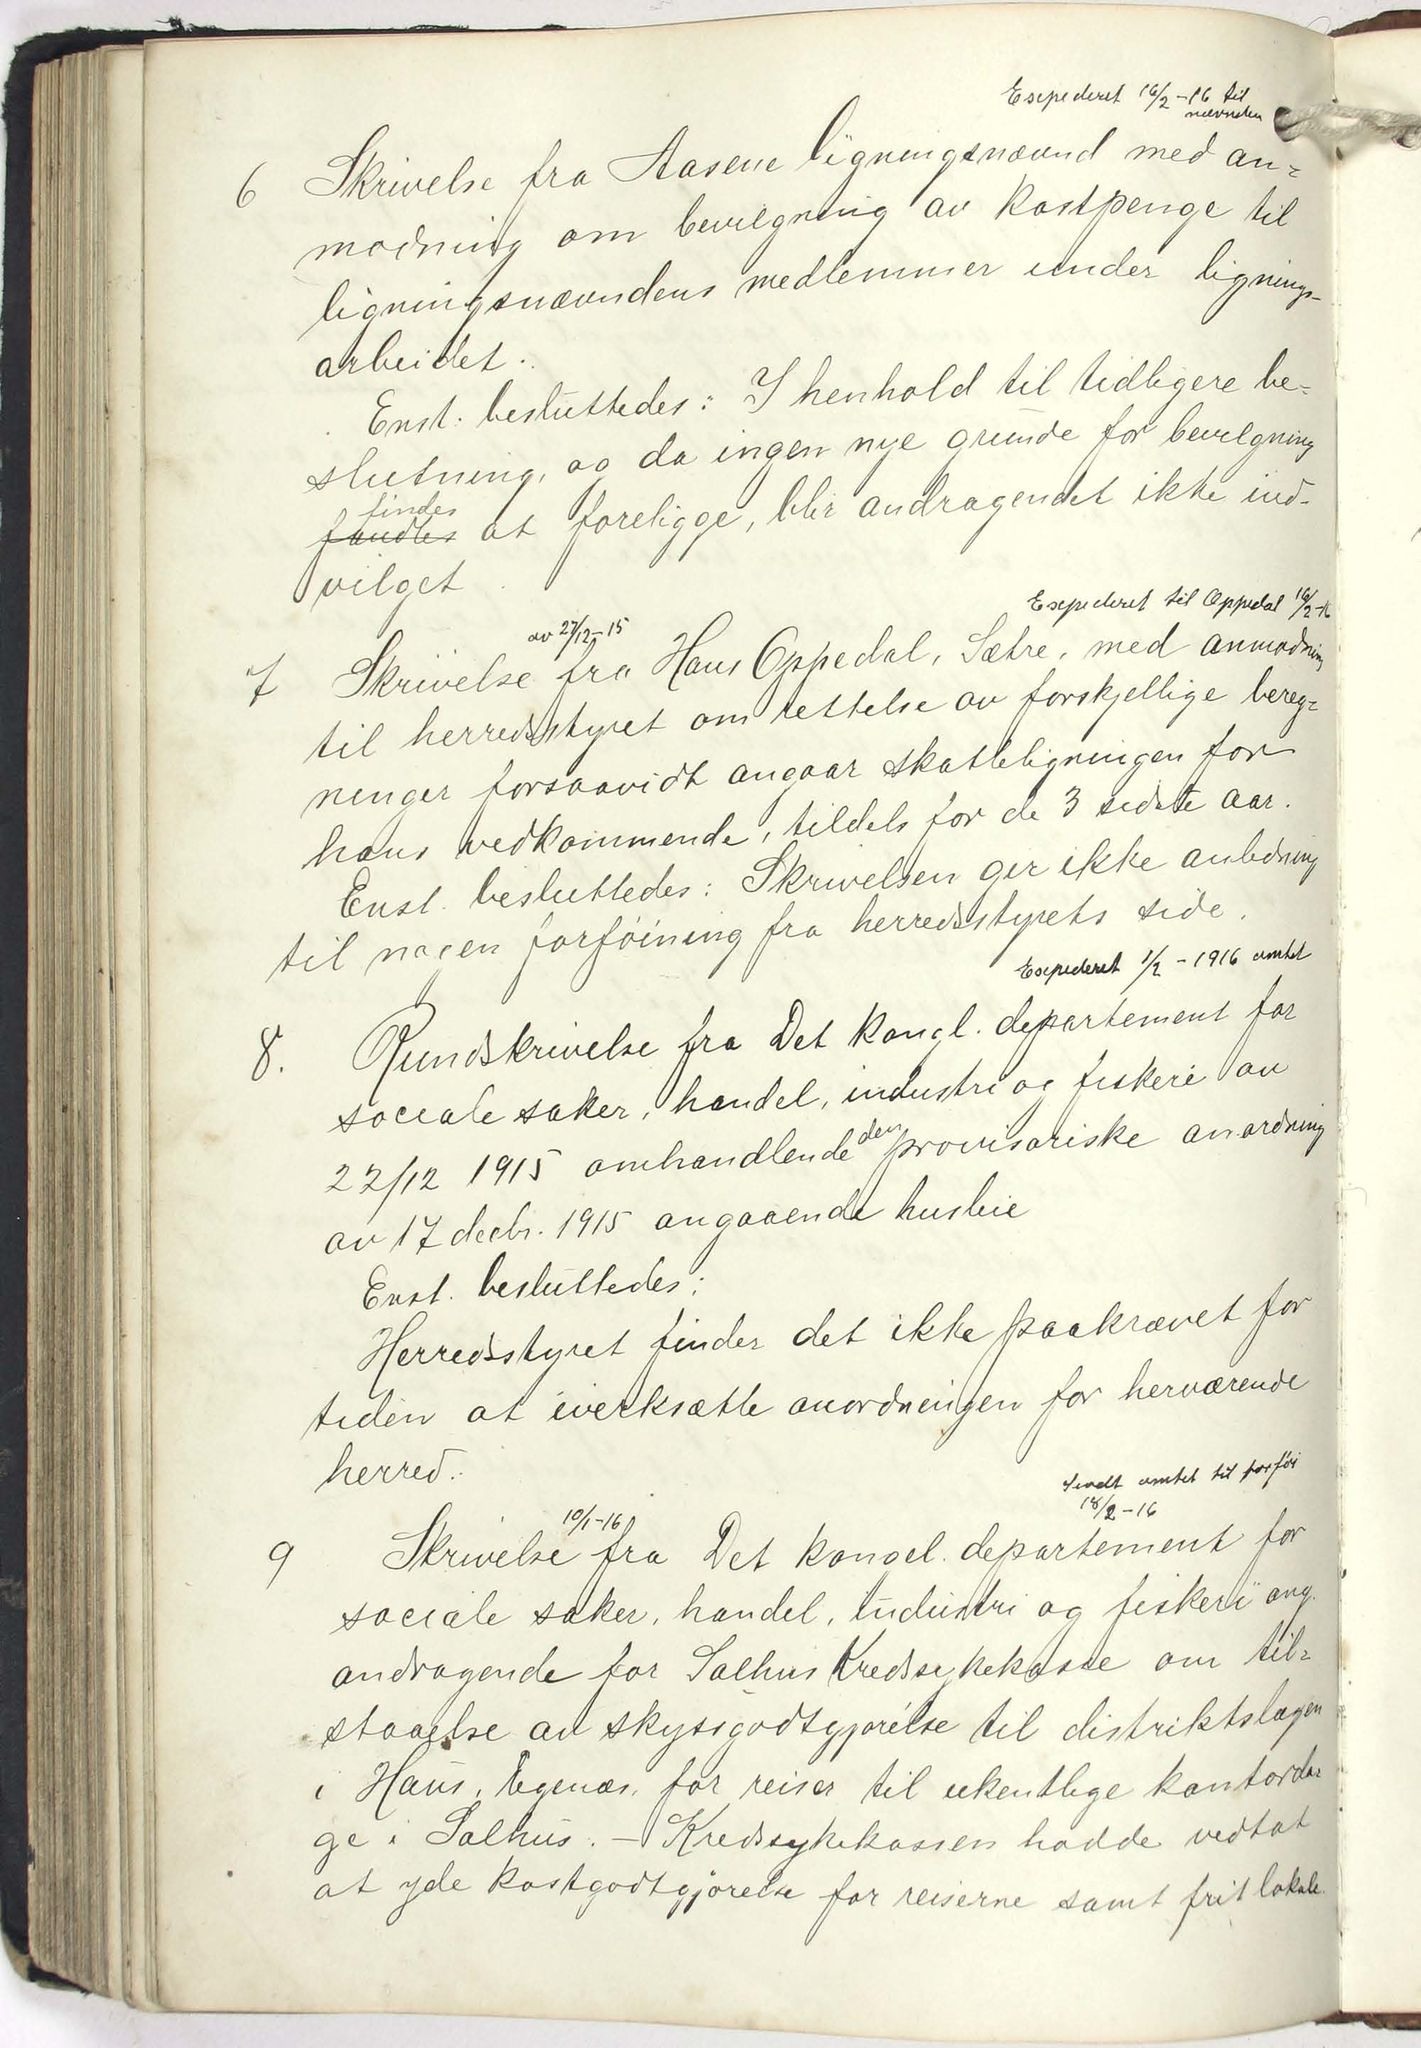 Expederet 16/2-16 til
nævnden
6 Skrivelse fra Aasene ligningsnævnd med an=
modning om bevilgning av kostpenge til
ligningsnævndens medlemmer under lignings-
arbeidet.
Enst. besluttedes: I henhold til tidligere be-
slutning, og da ingen nye grunde for bevilgning
findes
fandtes at foreligge, blir andragendet ikke ind-
vilget
Expederet til Oppedal 16/2-16
av 27/12-15
7 Skrivelse fra Hans Oppedal, Sætre, med anmodning
til herredsstyret om rettelse av forskjellige bereg=
ninger forsaavidt angaar skatteligningen for
hans vedkommende, tildels for de 3 sidste aar.
Enst. besluttedes: Skrivelsen gir ikke anledning
til nogen forföining fra herredsstyrets side.
Expederet 1/2-1916 amtet
8. Rundskrivelse fra Det kongl. departement for
sociale saker, handel, industri og fiskeri av
22/12 1915 omhandlende den provisoriske anordning
av 17 decbr. 1915 angaaende husleie
Enst. besluttedes:
Herredsstyret finder det ikke paakrævet for
tiden at iverksætte anordningen for herværende
herred.
Sendt amtet til
18/2-16
10/1-16
9 Skrivelse fra Det kongel. departement for
sociale saker, handel, industri og fiskeri ang.
andragende for Salhus Kredssykekasse om til=
staaelse av skyssgodtgjørelse til distriktslægen
i Haus, for reiser til ukentlige kontorda=
ge i Salhus. - Kredssykekassen hadde vedtat
at yde kostgodtgjørelse for reiserne samt frit lokale.